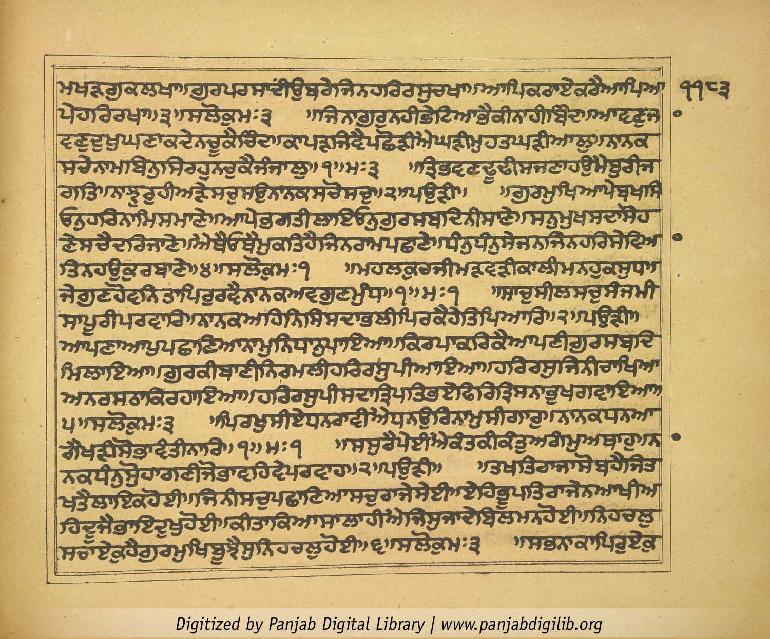 ਗੁਰਪਰਸਾਦੀਉਬਰੇਜਿਨਹਰਿਰਸੁਚਖਾ॥ਆਪਿਕਰਾਏਕਰੇਆਪਿਆ ੧੧੮੩
ਪੇਹਰਿਰਖਾ॥੩॥ਸਲੋਕੁਮਃ੩ ॥ਜਿਨਾਗੁਰੁਨਹੀਭੇਟਿਆਭੈਕੀਨਾਹੀਬਿੰਦ॥ਆਵਣੁਜ
ਵਣੁਦੁਖੁਘਣਾਕਦੇਨਚੂਕੈਚਿੰਦ॥ਕਾਪੜੁਜਿਵੈਪਛੋੜੀਐਘੜੀਮੁਹਤਘੜੀਆਲੁ॥ਨਾਨਕ
ਸਚੇਨਾਮਬਿਨੁਸਿਰਹੁਨਚੁਕੈਜੰਜਾਲੁ॥੧॥ਮਃ੩ ॥ਤ੍ਰਿਭਵਣਢੂਢੀਸਜਣਾਹਉਮੈਬੁਰੀਜ
ਗਤਿ॥ਨਾਝੁਰੁਹੀਅੜੇਸਚੁਚਉਨਾਨਕਸਚੋਸਚੁ॥੨॥ਪਉੜੀ॥ ॥ਗੁਰਮੁਖਿਆਪੇਬਖਸਿ
ਓਨੁਹਰਿਨਾਮਿਸਮਾਣੇ॥ਆਪੇਭਗਤੀਲਾਇਓਨੁਗੁਰਸਬਦਿਨੀਸਾਣੇ॥ਸਨਮੁਖਸਦਾਸੋਹ
ਣੇਸਚੈਦਰਿਜਾਣੇ॥ਐਥੈਓਥੈਮੁਕਤਿਹੈਜਿਨਰਾਮਪਛਾਣੇ॥ਧੰਨੁਧੰਨੁਸੇਜਨਜਿਨਹਰਿਸੇਵਿਆ
ਤਿਨਹਉਕੁਰਬਾਣੇ॥੪॥ਸਲੋਕੁਮਃ੧ ॥ਮਹਲਕੁਚਜੀਮੜਵੜੀਕਾਲੀਮਨਹੁਕਸੁਧ॥
ਜੇਗੁਣਹੋਵਨਿਤਾਪਿਰੁਰਵੈਨਾਨਕਅਵਗੁਣਮੁੰਧ॥੧॥ਮਃ੧ ॥ਸਾਚੁਸੀਲਸਚੁਸੰਜਮੀ
ਸਾਪੂਰੀਪਰਵਾਰਿ॥ਨਾਨਕਅਹਿਨਿਸਿਸਦਾਭਲੀਪਿਰਕੈਹੇਤਿਪਿਆਰਿ॥੨॥ਪਉੜੀ॥
ਆਪਣਾਆਪੁਪਛਾਣਿਆਨਾਮੁਨਿਧਾਨੁਪਾਇਆ॥ਕਿਰਪਾਕਰਿਕੈਆਪਣੀਗੁਰਸਬਦਿ
ਮਿਲਾਇਆ॥ਗੁਰਕੀਬਾਣੀਨਿਰਮਲੀਹਰਿਰਸੁਪੀਆਇਆ॥ਹਰਿਰਸੁਜਿਨੀਚਾਖਿਆ
ਅਨਰਸਠਾਕਿਰਹਾਇਆ॥ਹਰਿਰਸੁਪੀਸਦਾਤ੍ਰਿਪਤਿਭਏਫਿਰਿਤ੍ਰਿਸਨਾਭੁਖਗਵਾਇਆ॥
੫॥ਸਲੋਕੁਮਃ੩ ॥ਪਿਰਖੁਸੀਏਧਨਰਾਵੀਐਧਨਉਰਿਨਾਮੁਸੀਗਾਰੁ॥ਨਾਨਕਧਨਆ
ਗੈਖੜੀਸੋਭਾਵੰਤੀਨਾਰਿ॥੧॥ਮਃ੧ ॥ਸਸੁਰੈਪੇਈਐਕੰਤਕੀਕੰਤੁਅਗੰਮੁਅਥਾਹੁ॥ਨ
ਨਕਧੰਨੁਸੋੁਹਾਗਣੀਜੋਭਾਵਹਿਵੇਪਰਵਾਹ॥੨॥ਪਉੜੀ॥ ॥ਤਖਤਿਰਾਜਾਸੋਬਹੈਜਿਤ
ਖਤੈਲਾਇਕਹੋਈ॥ਜਿਨੀਸਚੁਪਛਾਣਿਆਸਚੁਰਾਜੇਸੇਈ॥ਏਹਿਭੂਪਤਿਰਾਜੇਨਆਖੀਅ
ਹਿਦੂਜੈਭਾਇਦੁਖੁਹੋਈ॥ਕੀਤਾਕਿਆਸਾਲਾਹੀਐਜਿਸੁਜਾਦੇਬਿਲਮਨਹੋਈ॥ਨਿਹਚਲੁ
ਸਚਾਏਕੁਹੈਗੁਰਮੁਖਿਬੂਝੈਸੁਨਿਹਚਲੁਹੋਈ॥੬॥ਸਲੋਕੁਮਃ੩ ॥ਸਭਨਾਕਾਪਿਰੁਏਕੁ
Digitized by Panjab Digital Library | www.panjabdigilib.org